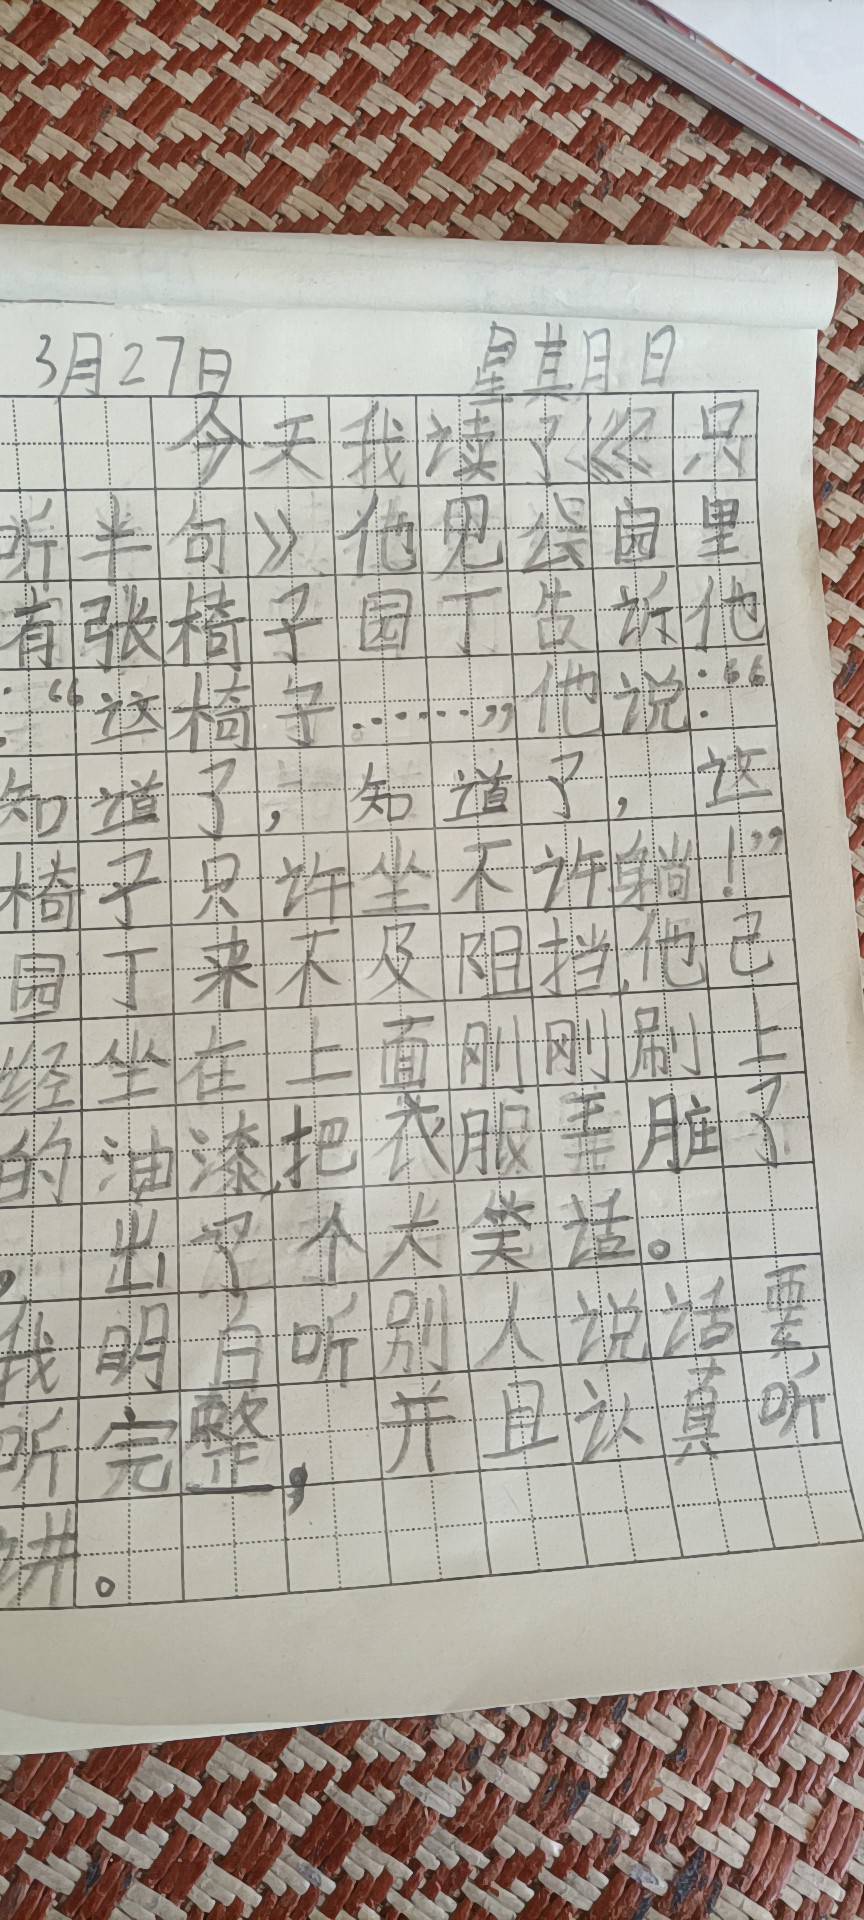 3月27日 星其月日
今天我读了《只
听半句》他见公园里
有张椅子园丁告诉他
:“这椅子……”他说:“
知道了,知道了,这
椅子只许坐不许躺!”
园丁来不及阻挡,他己
经坐在上面刚刚刷上
的油漆,把衣服弄脏了
,出了个大笑话。
我明白听别人说话要
听完整,并且认真听
讲。